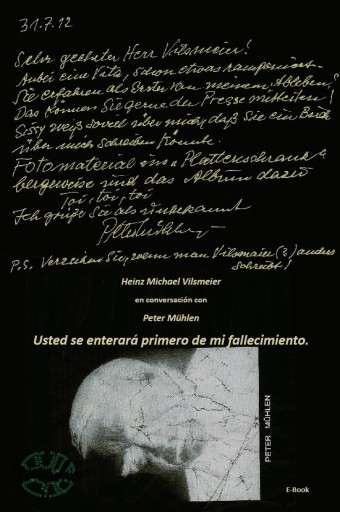 31.7.12
Sehr geehrter Herr Vilsmeier!
Anbei eine Vita, schon etwas ramponiert.
Sie erfahren als Erster von meinem Ableben,
Das können Sie gerne der Presse mitteilen!
Sissy weiß soviel über mich, daß Sie ein Buch
über mich schreiben könnte.
Fotomaterial im "Plattenschrank"
bergeweise und das Album dazu
Toi, toi, toi
Ich grüße Sie als unbekannt
P.S. Verzeihen Sie, wenn man Vilsmaier (?) anders
schreibt!
Heinz Michael Vilsmeier
en conversación con
Peter Mühlen
Usted se enterará primero de mi fallecimiento.
PETER MÜHLEN
E-Book